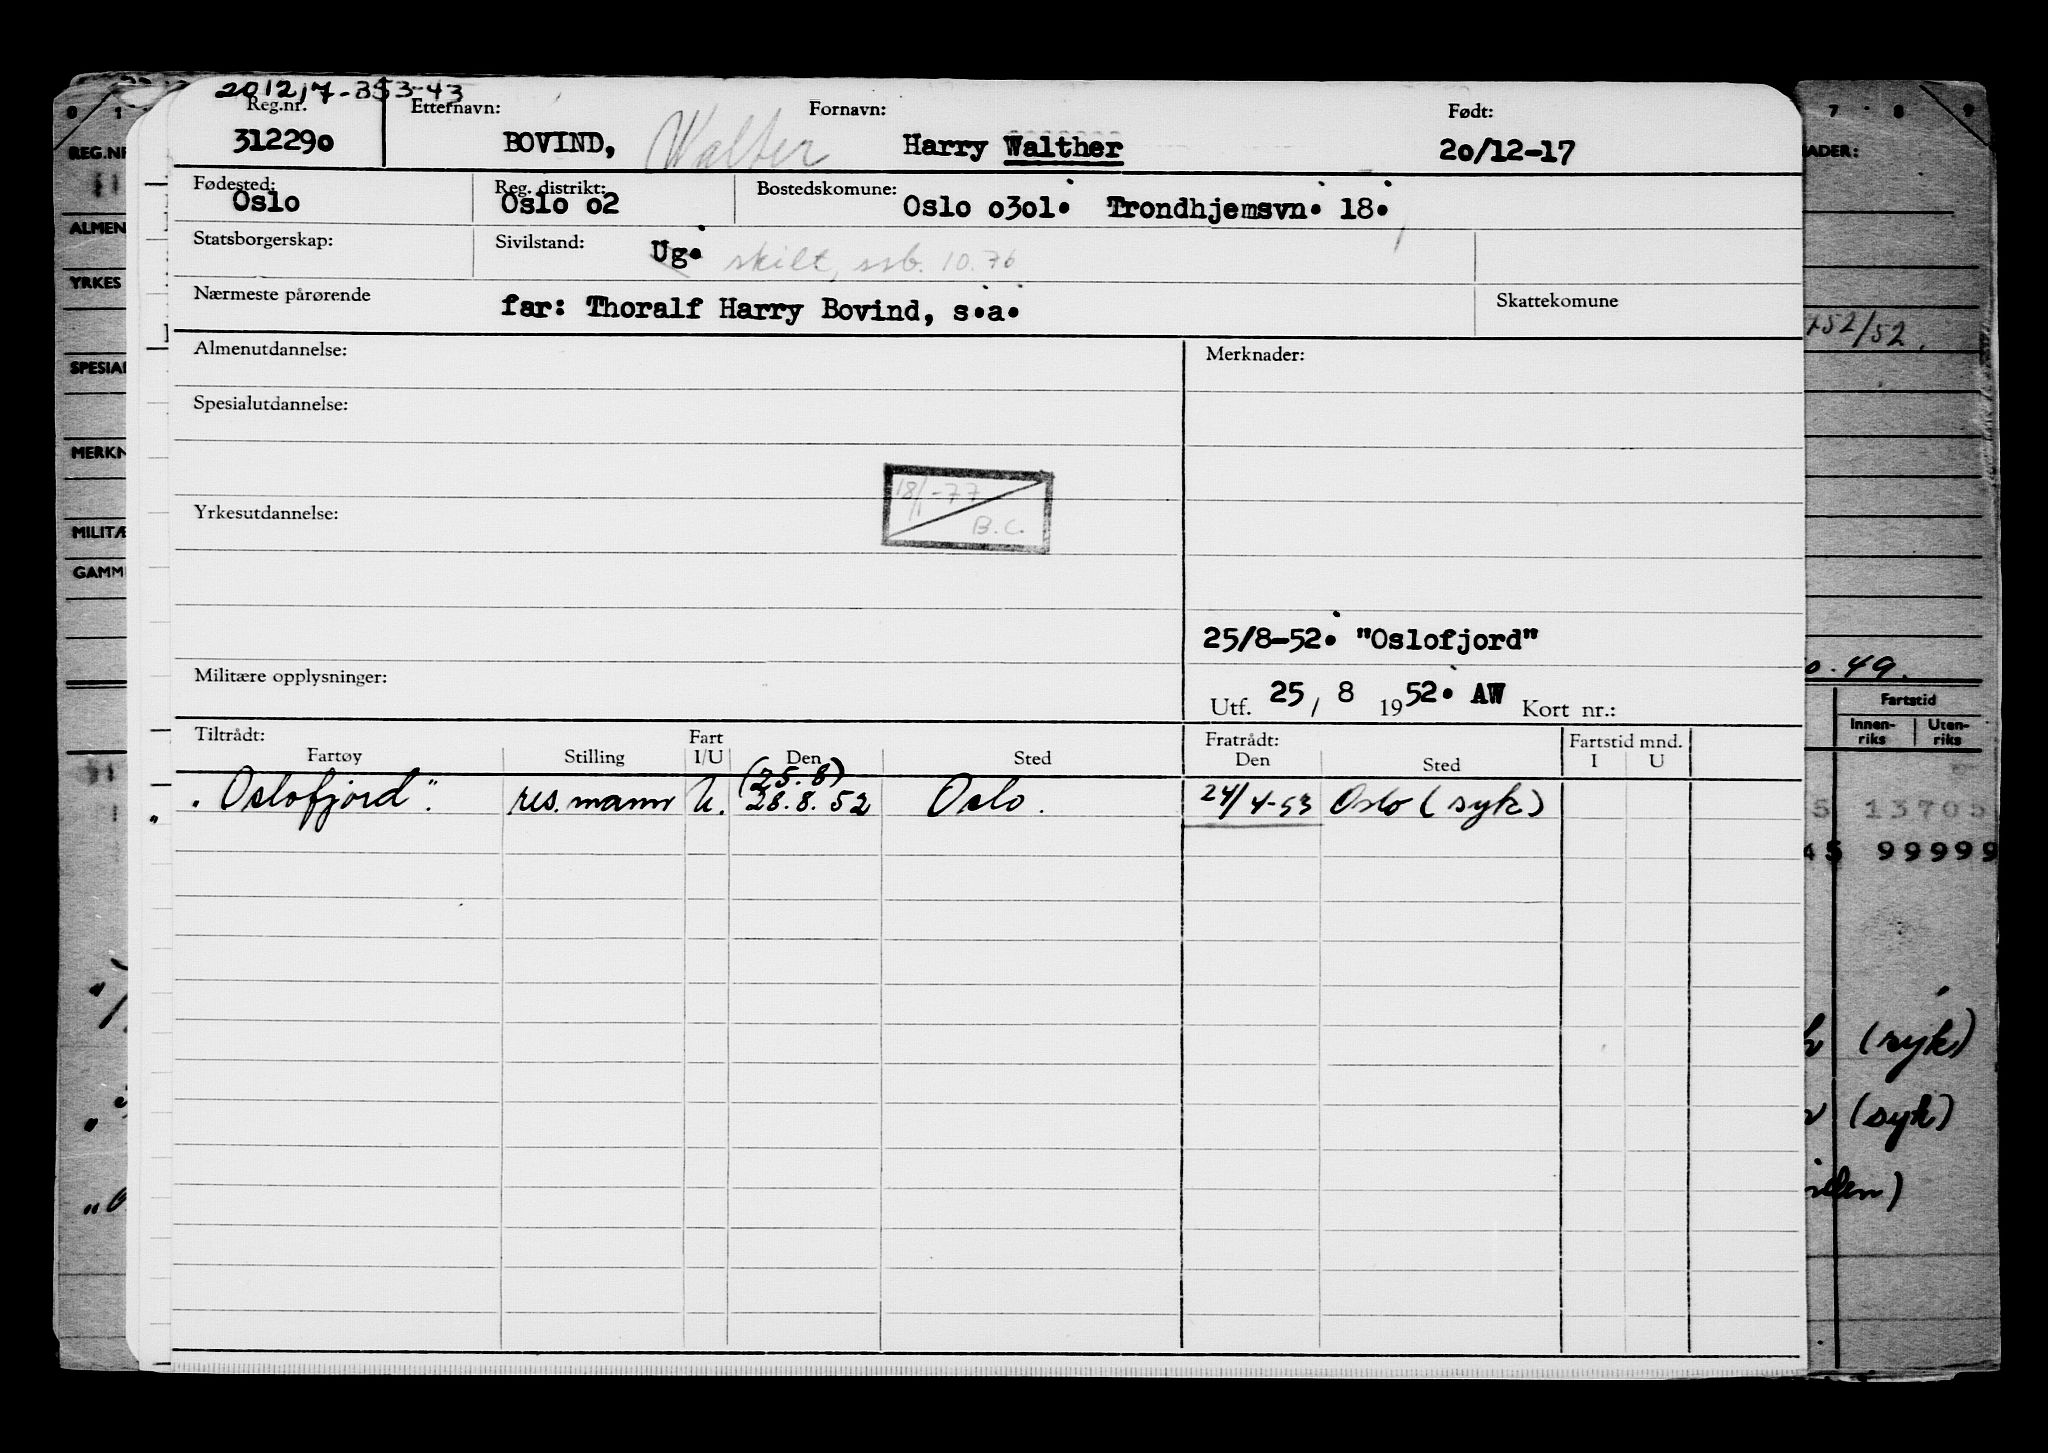 201217-353-43
Reg.nr. Etternavn: Fornavn: Født:
312290 BOVIND, Walter Harry Walther 20/12-17
Fødested: Reg. distrikt: Bostedskomune:
Oslo Oslo 02 Oslo 0301. Trondhjemsvn. 18.
Statsborgerskap: Sivilstand: Ug. skilt, ssb. 10.76
Nærmeste pårørende far: Thoralf Harry Bovind, s.a. Skattekomune
Almenutdannelse: Merknader:
Spesialutdannelse:
18/1-77
B.C.
Yrkesutdannelse:
25/8-52. "Oslofjord"
Militære opplysninger:
Utf. 25 / 8 1952. AW Kort nr.:
Tiltrådt: Fart Fratrådt: Fartstid mnd.
Fartøy Stilling I/U Den Sted Den Sted I U
(25.8)
"Oslofjord". res. mann U. 28.8.52 Oslo. 24/4-53 Oslo (syk)
0 1
REG.NR
ALMEN
YRKES
SPESIAL
MERKN
MILITÆ
GAMM
7 8 9
NADER:
752/52.
0.49.
Fartstid
Innen-riks Uten-riks
5 13705
45 99999
(syk)
(syk)